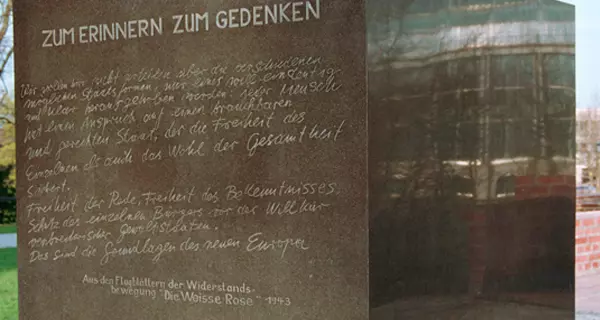 ZUM ERINNERN ZUM GEDENKEN
"Wir wollen hier nicht urteilen über die verschiedenen
möglichen Staatsformen, nur eines will eindeutig
und klar herausgehoben werden: jeder Mensch
hat einen Anspruch auf einen brauchbaren
und gerechten Staat, der die Freiheit des
Einzelnen als auch das Wohl der Gesamtheit
sichert.
Freiheit der Rede, Freiheit des Bekenntnisses,
Schutz des einzelnen Bürgers vor der Willkür
verbrecherischer Gewaltstaaten.
Das sind die Grundlagen des neuen Europa
Aus den Flugblättern der Widerstands-
bewegung "Die Weisse Rose" 1943